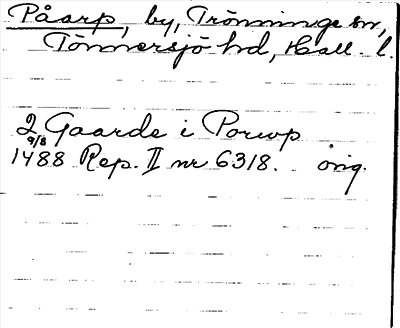 Påarp, by, Trönninge sn,
Tönnersjö hd, Hall. l.
2 Gaarde i Porup
9/8
1488 Rep. II nr 6318. orig.